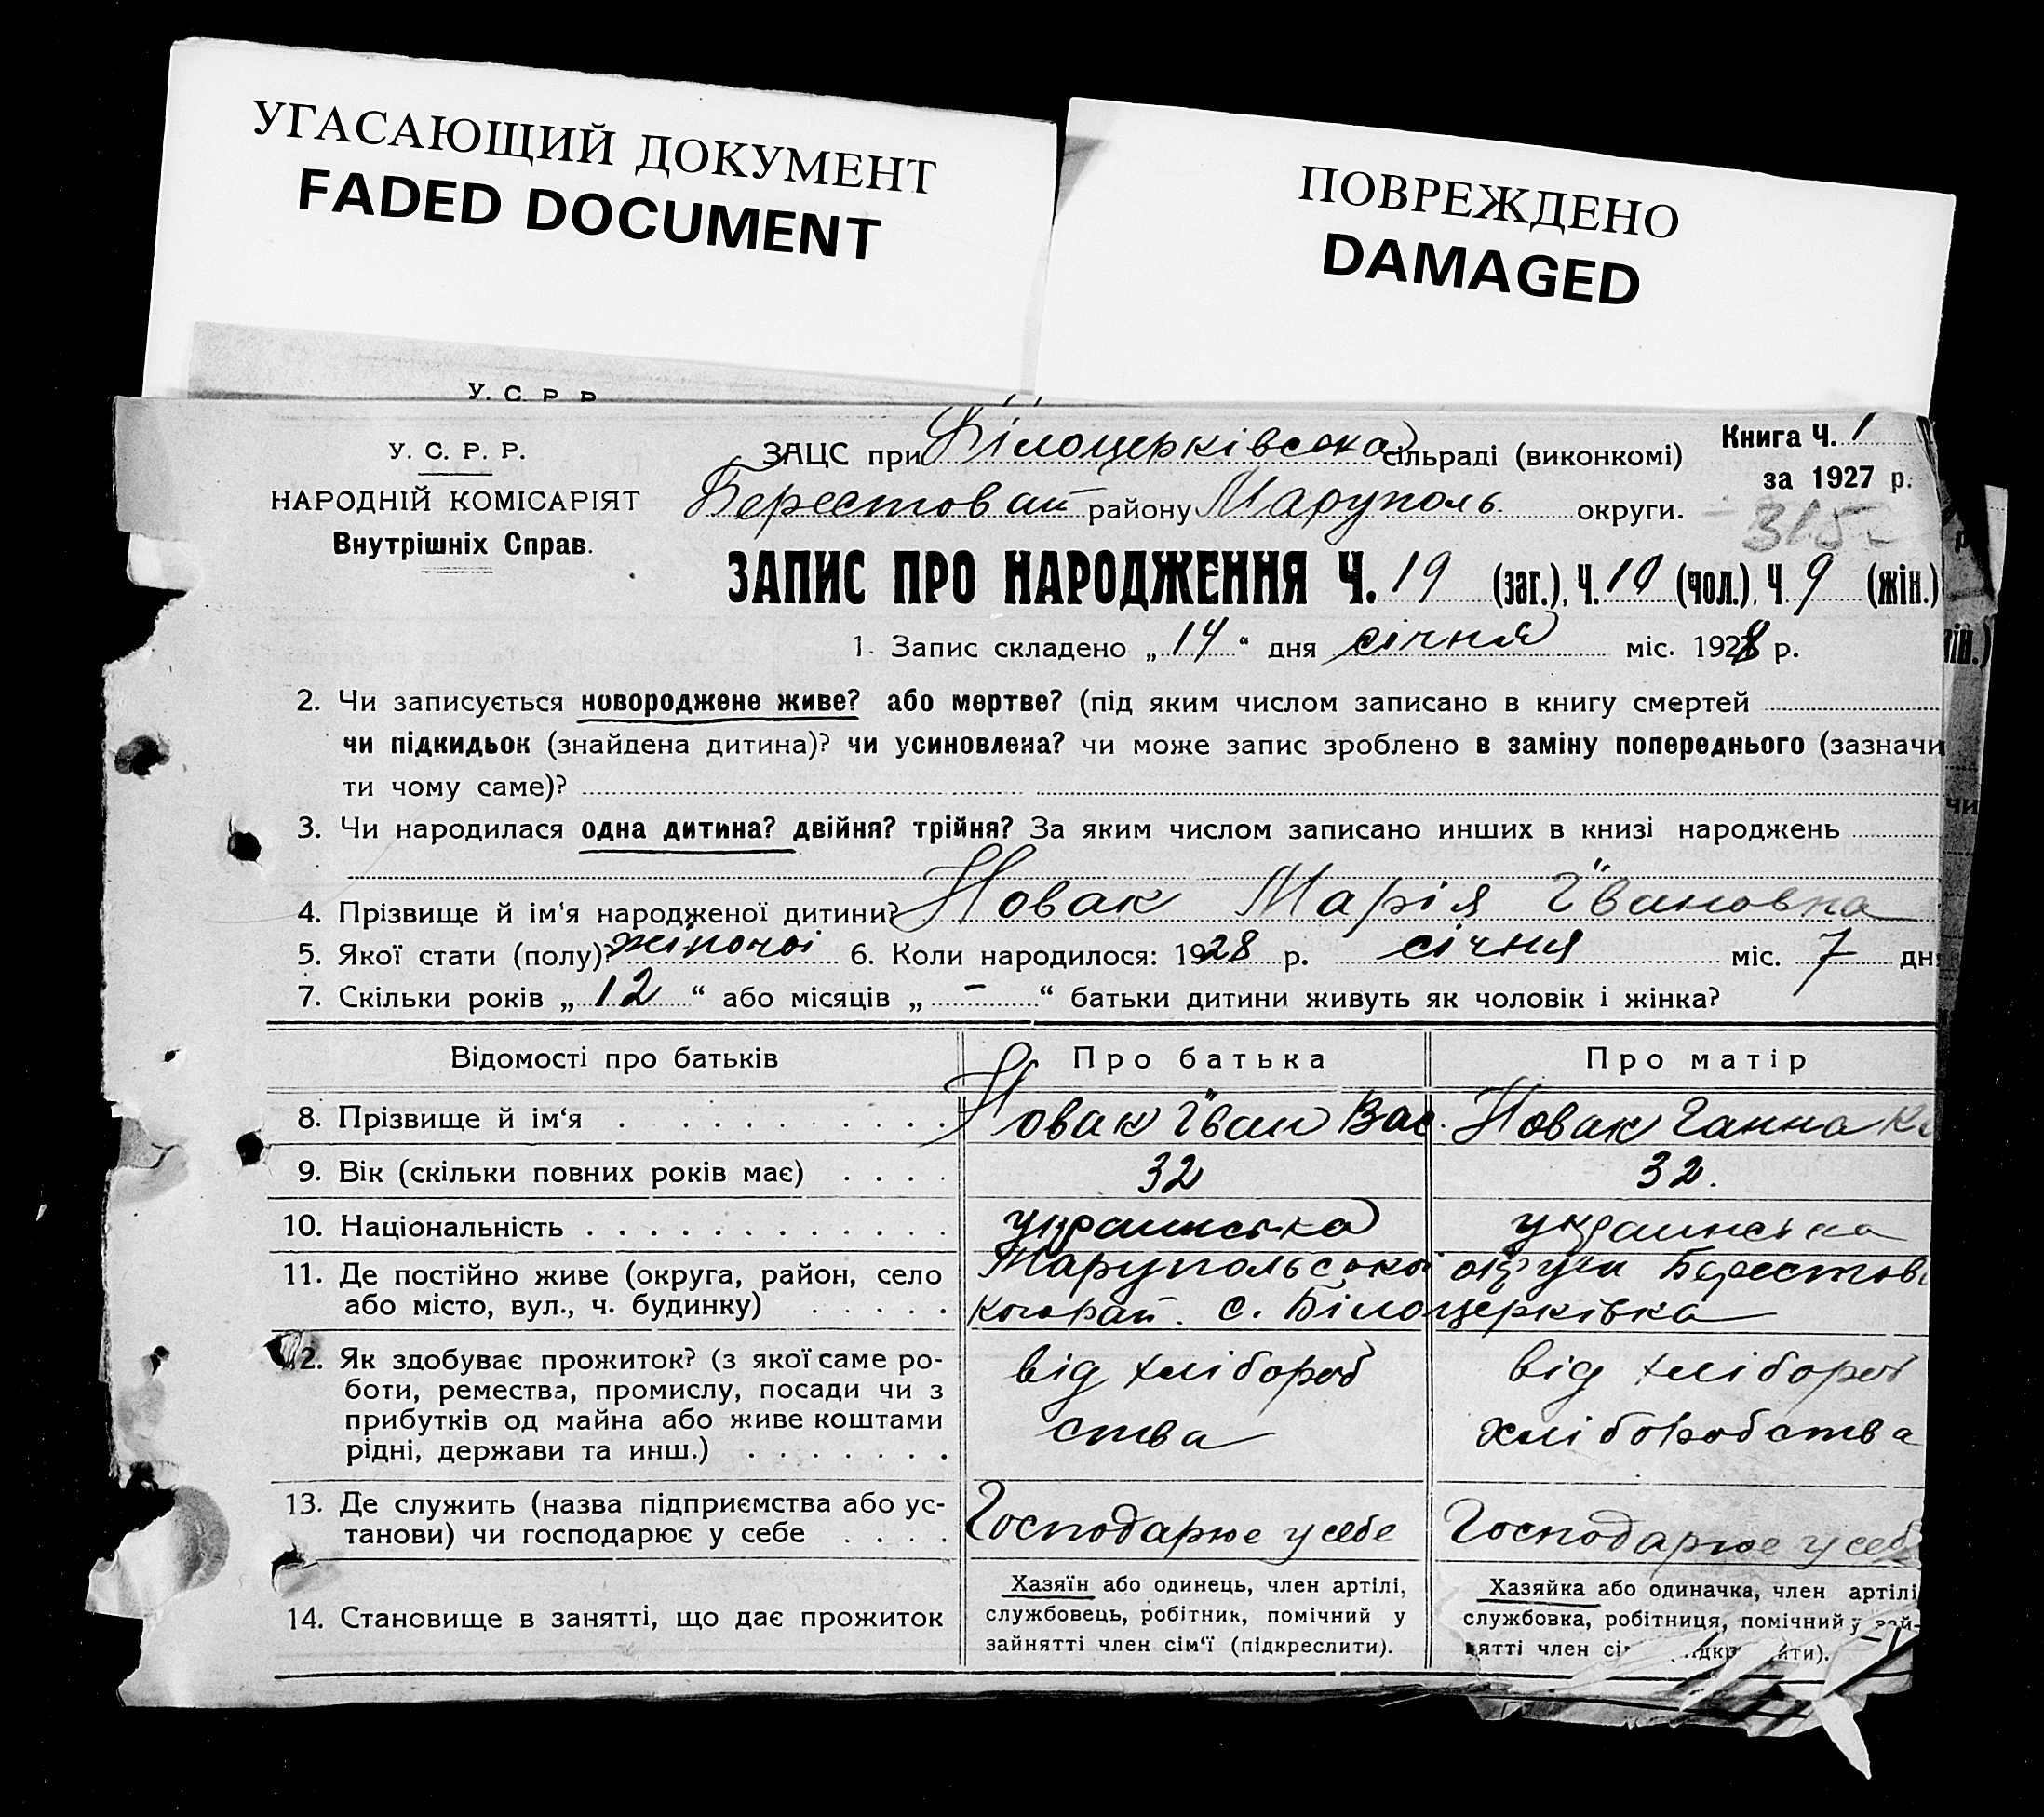 УГАСАЮЩИЙ ДОКУМЕНТ
FADED DOCUMENT
ПОВРЕЖДЕНО
DAMAGED
У. С. Р. Р.
У. С. Р. Р.
НАРОДНІЙ КОМІСАРІЯТ
Внутрішніх Справ.
ЗАЦС при Білоцерківська сільраді (виконкомі)
Берестовай району Маруполь округи.
Книга Ч. 1
за 1927 р.
315
ЗАПИС ПРО НАРОДЖЕННЯ Ч. 19 (заг.), Ч. 10 (чол.), Ч. 9 (жін.)
1. Запис складено „ 14 “ дня січня міс. 1928 р.
2. Чи записується новороджене живе? або мертве? (під яким числом записано в книгу смертей
чи підкидьок (знайдена дитина)? чи усиновлена? чи може запис зроблено в заміну попереднього (зазначи
ти чому саме)?
3. Чи народилася одна дитина? двійня? трійня? За яким числом записано инших в книзі народжень
4. Прізвище й ім'я народженої дитини? Новак Марія Ївановна
5. Якої стати (полу)? жіночоі 6. Коли народилося: 1928 р. січня міс. 7 дн
7. Скільки років „ 12 “ або місяців „ - “ батьки дитини живуть як чоловік і жінка?
Відомості про батьків Про батька Про матір
8. Прізвище й ім‘я Новак Їван Вас. Новак Ганна
9. Вік (скільки повних років має) 32 32.
10. Національність украинська украинська
11. Де постійно живе (округа, район, село Марупольськоі округи Берестов
або місто, вул., ч. будинку) с. Білоцерківка
12. Як здобуває прожиток? (з якої саме ро- від хлібороб від хлібороб
боти, ремества, промислу, посади чи з
прибутків од майна або живе коштами ства хліборобства
рідні, держави та инш.)
13. Де служить (назва підприємства або ус-
танови) чи господарює у себе Господарює у себе Господарює у себ
14. Становище в занятті, що дає прожиток
Хазяїн або одинець, член артілі,
службовець, робітник, помічний у
зайнятті член сім‘ї (підкреслити).
Хазяйка або одиначка, член артілі
службовка, робітниця, помічний у зай-
нятті член